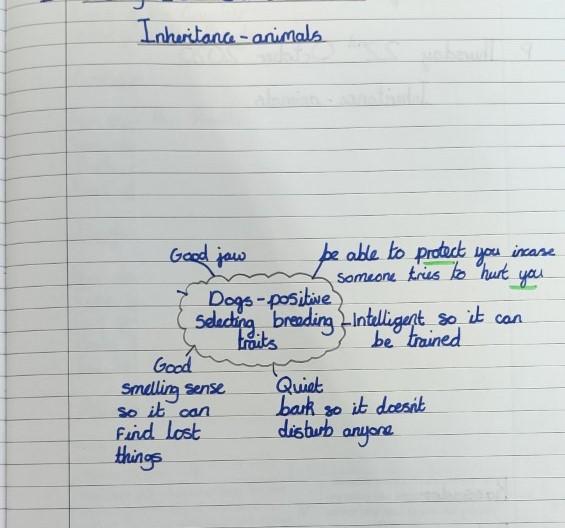 Inheritance - animals
Good jaw
be able to protect you incase
someone tries to hurt you
Dogs - positive
Selecting breeding
traits
Intelligent so it can
be trained
Good
smelling sense
so it can
Find lost
things
Quiet
bark so it doesn't
disturb anyone